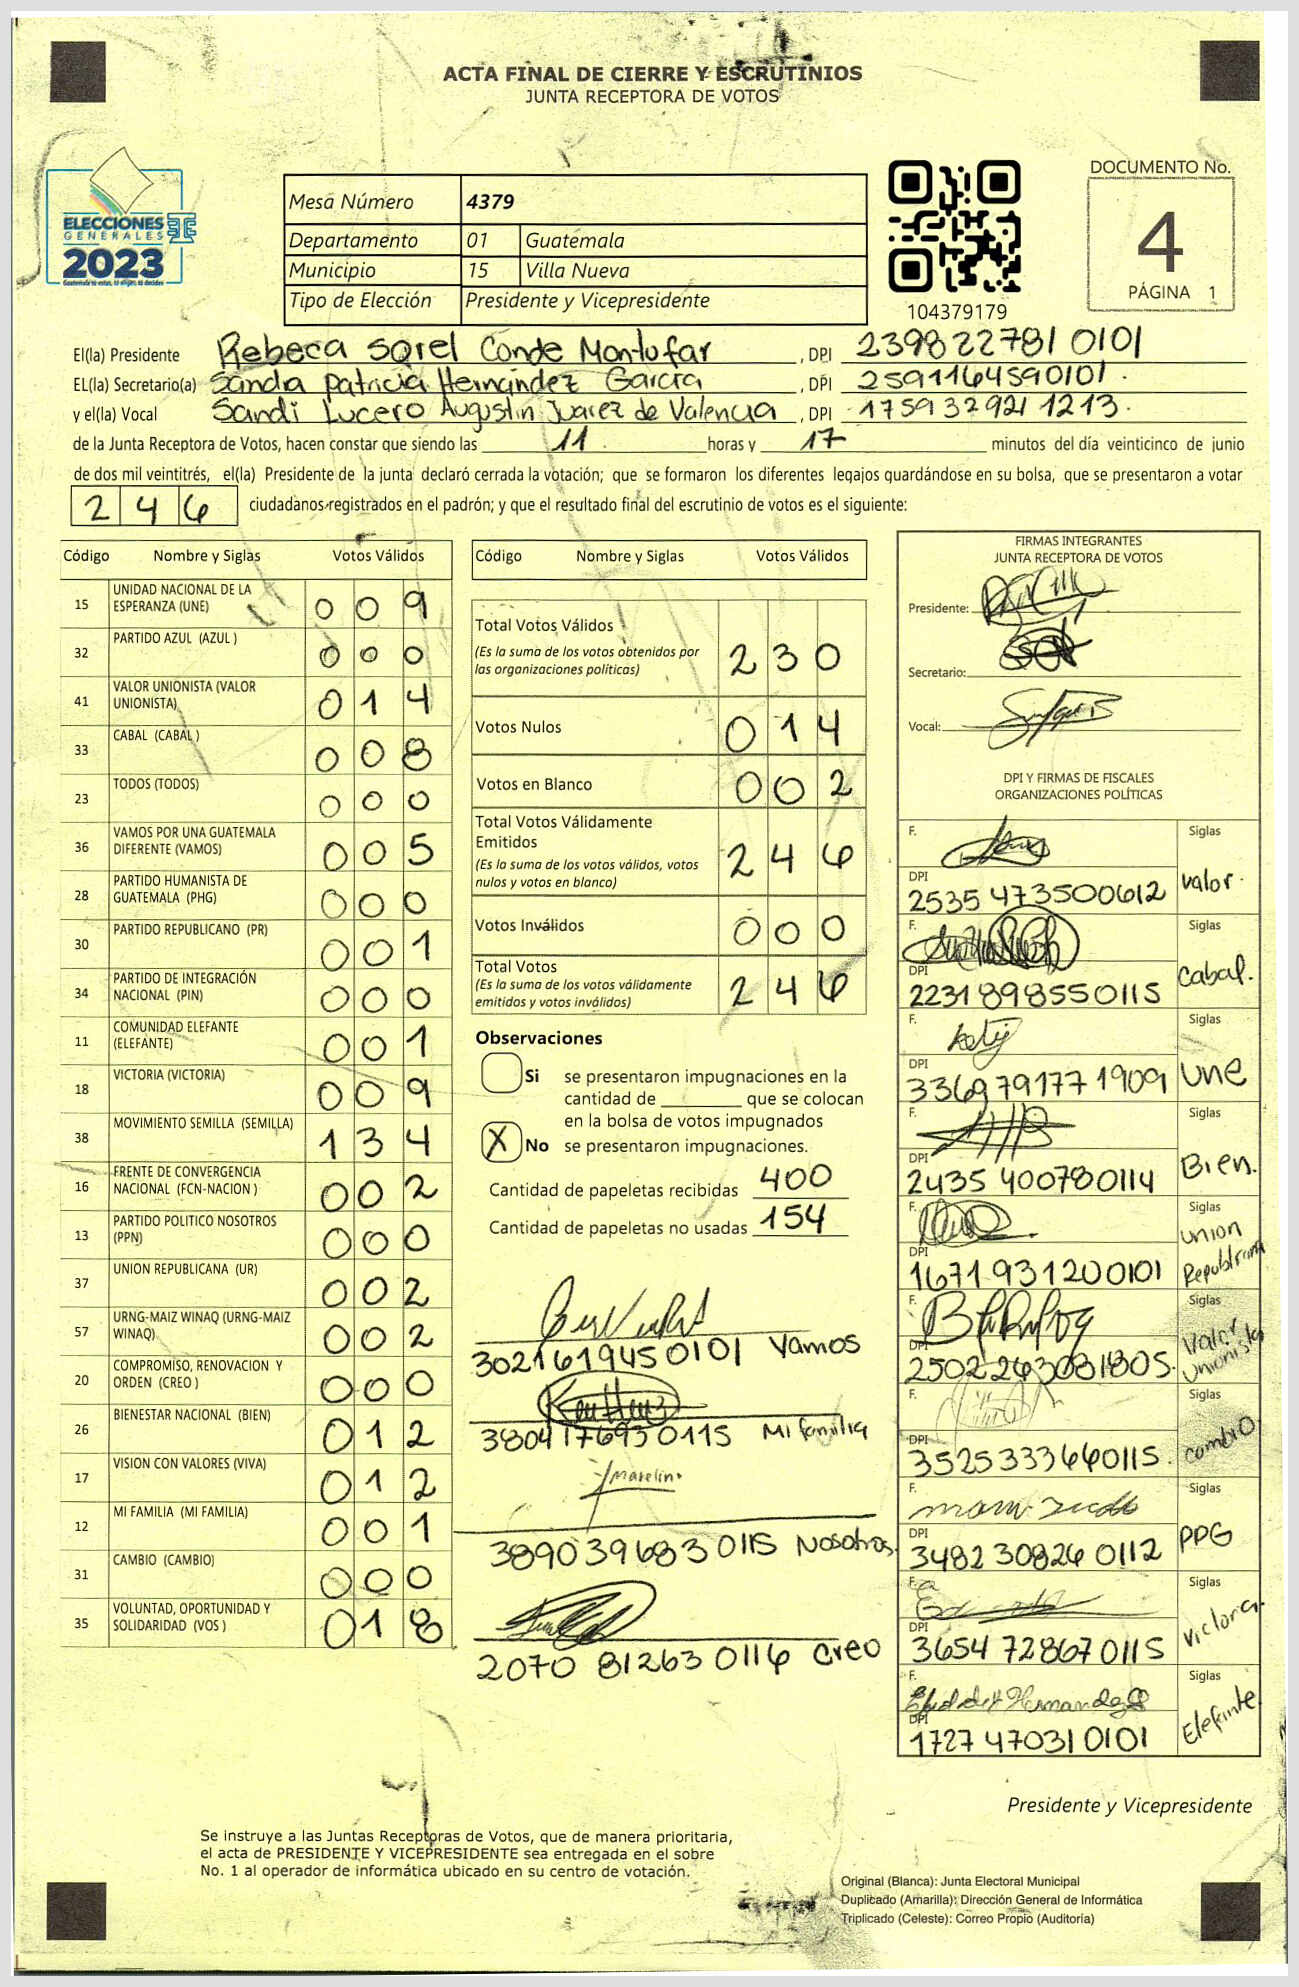 ACTA FINAL DE CIERRE Y ESCRUTINIOS
JUNTA RECEPTORA DE VOTOS
ELECCIONES
GENERALES
2023
Mesa Número 4379
Departamento 01 Guatemala
Municipio 15 Villa Nueva
Tipo de Elección Presidente y Vicepresidente
104379179
DOCUMENTO No.
4
PÁGINA 1
El(la) Presidente Rebeca Sorel Conde Montufar, DPI 2398227810101
EL(la) Secretario(a) Sandra Patricia Hernández García, DPI 2591164590101.
y el(la) Vocal Sandi Lucero Augustin Juarez de Valencia, DPI 1759329211213.
de la Junta Receptora de Votos, hacen constar que siendo las 11 horas y 17 minutos del día veinticinco de junio
de dos mil veintitrés, el(la) Presidente de la junta declaró cerrada la votación; que se formaron los diferentes legajos guardándose en su bolsa, que se presentaron a votar
246 ciudadanos registrados en el padrón; y que el resultado final del escrutinio de votos es el siguiente:
Código Nombre y Siglas Votos Válidos
15 UNIDAD NACIONAL DE LA ESPERANZA (UNE) 009
32 PARTIDO AZUL (AZUL ) 000
41 VALOR UNIONISTA (VALOR UNIONISTA) 014
33 CABAL (CABAL ) 008
23 TODOS (TODOS) 000
36 VAMOS POR UNA GUATEMALA DIFERENTE (VAMOS) 005
28 PARTIDO HUMANISTA DE GUATEMALA (PHG) 000
30 PARTIDO REPUBLICANO (PR) 001
34 PARTIDO DE INTEGRACIÓN NACIONAL (PIN) 000
11 COMUNIDAD ELEFANTE (ELEFANTE) 001
18 VICTORIA (VICTORIA) 009
38 MOVIMIENTO SEMILLA (SEMILLA) 134
16 FRENTE DE CONVERGENCIA NACIONAL (FCN-NACION ) 002
13 PARTIDO POLITICO NOSOTROS (PPN) 000
37 UNION REPUBLICANA (UR) 002
57 URNG-MAIZ WINAQ (URNG-MAIZ WINAQ) 002
20 COMPROMISO, RENOVACION Y ORDEN (CREO ) 000
26 BIENESTAR NACIONAL (BIEN) 012
17 VISION CON VALORES (VIVA) 012
12 MI FAMILIA (MI FAMILIA) 001
31 CAMBIO (CAMBIO) 000
35 VOLUNTAD, OPORTUNIDAD Y SOLIDARIDAD (VOS ) 018
Código Nombre y Siglas Votos Válidos
Total Votos Válidos 230
(Es la suma de los votos obtenidos por las organizaciones políticas)
Votos Nulos 014
Votos en Blanco 002
Total Votos Válidamente Emitidos 246
(Es la suma de los votos válidos, votos nulos y votos en blanco)
Votos Inválidos 000
Total Votos 246
(Es la suma de los votos válidamente emitidos y votos inválidos)
Observaciones
Si se presentaron impugnaciones en la
cantidad de ________ que se colocan
en la bolsa de votos impugnados
X No se presentaron impugnaciones.
Cantidad de papeletas recibidas 400
Cantidad de papeletas no usadas 154
3021619450101 Vamos
3804176930115 Mi familia
Marelino
3890396830115 Nosotros
2070812630116 Creo
FIRMAS INTEGRANTES
JUNTA RECEPTORA DE VOTOS
Presidente:
Secretario:
Vocal:
DPI Y FIRMAS DE FISCALES
ORGANIZACIONES POLÍTICAS
F. Siglas
DPI 2535473500612 Valor.
F. Siglas
DPI 2231898550115 Cabal.
F. Siglas
DPI 3369791771909 Une
F. Siglas
DPI 2435400780114 Bien.
F. Siglas
DPI 1671931200101 Union
F. Siglas
DPI Valor Unionista
F. Siglas
DPI 3525333660115. Cambio
F. Siglas
DPI 3482308260112 PPG
F. Siglas
DPI 3654728670115 Victoria.
F. Hernandez Siglas
DPI 1727470310101 Elefante
Presidente y Vicepresidente
Se instruye a las Juntas Receptoras de Votos, que de manera prioritaria,
el acta de PRESIDENTE Y VICEPRESIDENTE sea entregada en el sobre
No. 1 al operador de informática ubicado en su centro de votación.
Original (Blanca): Junta Electoral Municipal
Duplicado (Amarilla): Dirección General de Informática
Triplicado (Celeste): Correo Propio (Auditoría)